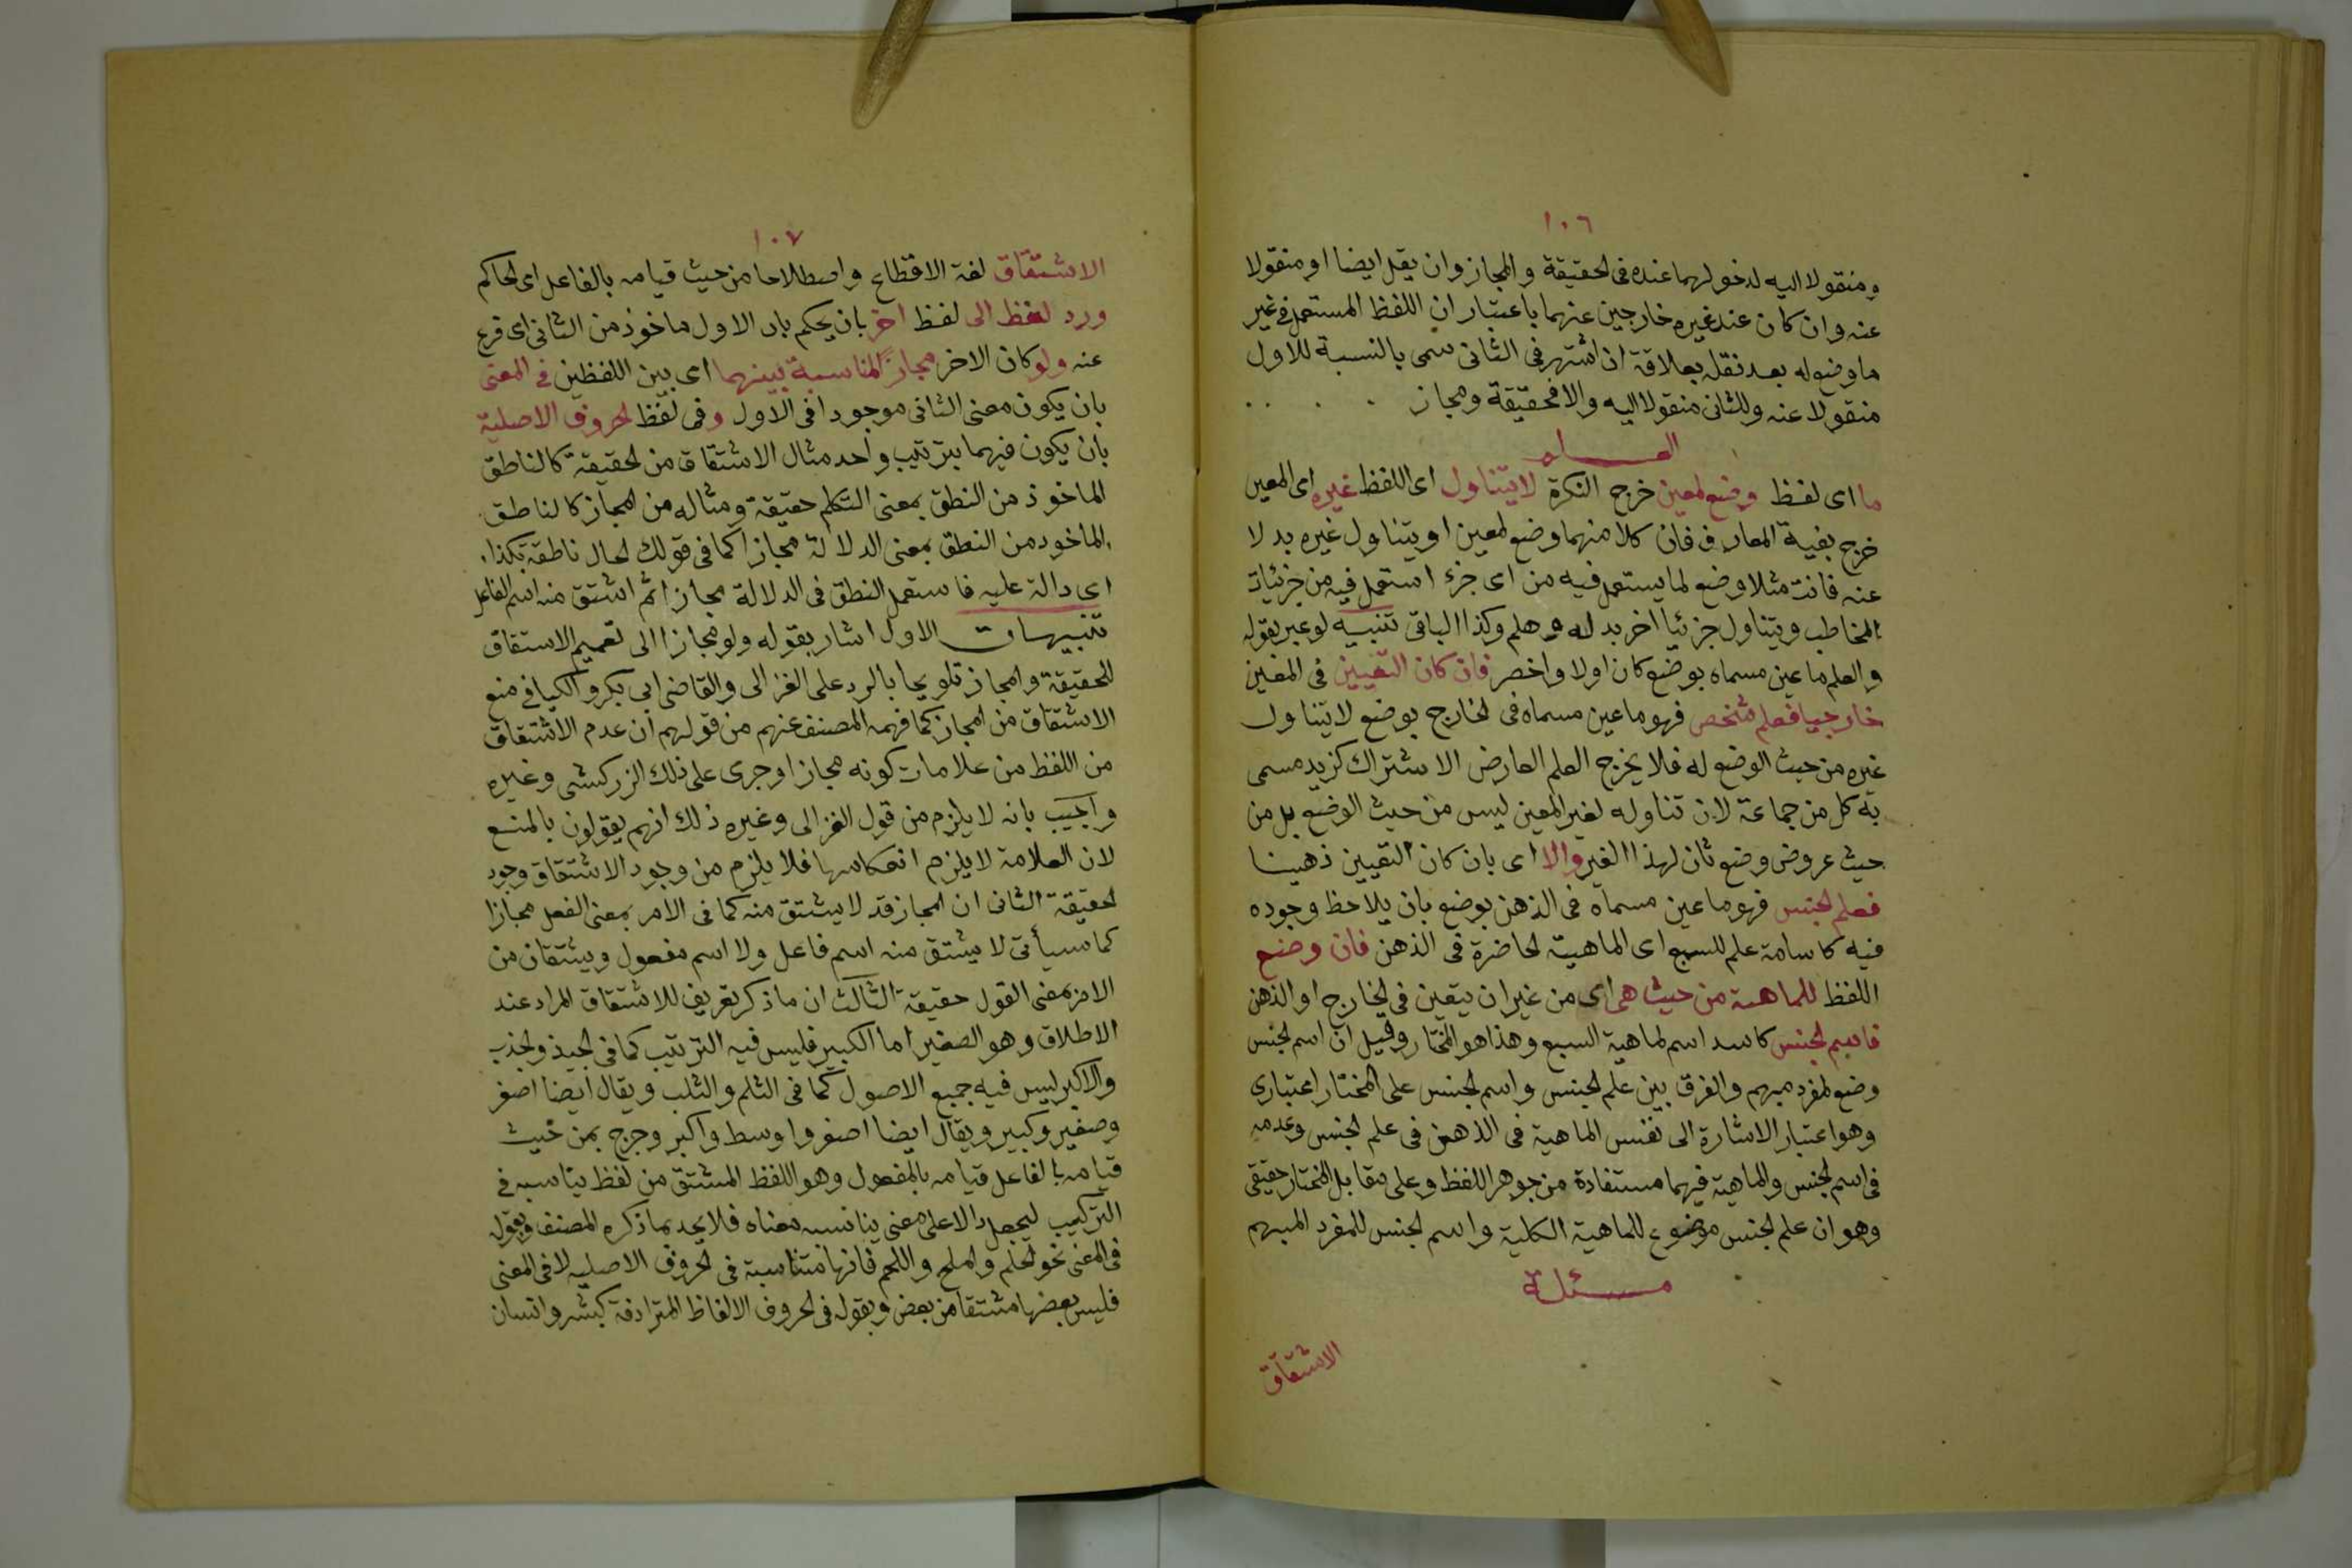 ١٠٦
ومنقولا اليه لدخولهما عنده فى الحقيقة والمجاز وان يقل ايضا او منقولا
عنه وان كان عند غيره خارجين عنهما باعتبار ان اللفظ المستعمل فى غير
ما وضع له بعد نقله بعلاقة ان اشتهر فى الثانى سمى بالنسبة للاول
منقولا عنه وللثانى منقولا اليه والا فحقيقة ومجاز
العلم
ما اى لفظ وضع لمعين خرج النكرة لا يتناول اى اللفظ غيره اى المعين
خرج بقية المعارف فان كلا منهما وضع لمعين او يتناول غيره بدلا
عنه فانت مثلا وضع لما يستعمل فيه من اى جزء استعمل فيه من جزئيات
المخاطب ويتناول جزئيا اخر بدله وهلم وكذا الباقى تنبيه لو عبر بقوله
والعلم ما عين مسماه بوضع كان اولا واخصر فان كان التعيين فى المعين
خارجيا فعلم شخص فهو ما عين مسماه فى الخارج بوضع لا يتناول
غيره من حيث الوضع له فلا يخرج العلم العارض الاشتراك كزيد مسمى
به كل من جماعة لان تناوله لغير المعين ليس من حيث الوضع بل من
حيث عروض وضع ثان لهذا الغير والا اى بان كان التعيين ذهنيا
فعلم الجنس فهو ما عين مسماه فى الذهن بوضع بان يلاحظ وجوده
فيه كاسامة علم للسبع اى الماهية الحاضرة فى الذهن فان وضع
اللفظ للماهية من حيث هى اى من غير ان يتعين فى الخارج او الذهن
فاسم الجنس كاسد اسم لماهية السبع وهذا هو المختار وقيل ان اسم الجنس
وضع لمفرد مبهم والفرق بين علم الجنس واسم الجنس على المختار اعتبارى
وهو اعتبار الاشارة الى نفس الماهية فى الذهن فى علم الجنس وعدمه
فى اسم الجنس والماهية فيهما مستفادة من جوهر اللفظ وعلى مقابل المختار حقيقى
وهو ان علم الجنس موضوع للماهية الكلية واسم الجنس للمفرد المبهم
مسئلة
الاشتقاق
١٠٧
الاشتقاق لغة الاقتطاع واصطلاحا من حيث قيامه بالفاعل اى الحاكم
ورد لفظ الى لفظ اخر بان يحكم بان الاول ماخوذ من الثانى اى فرع
عنه ولو كان الاخر مجازا لمناسبة بينهما اى بين اللفظين فى المعنى
بان يكون معنى الثانى موجودا فى الاول وفى لفظ الحروف الاصلية
بان يكون فيهما بترتيب واحد مثال الاشتقاق من الحقيقة كالناطق
الماخوذ من النطق بمعنى التكلم حقيقة ومثاله من المجاز كالناطق
الماخود من النطق بمعنى الدلالة مجازا كما فى قولك الحال ناطقة بكذا
اى دالة عليه فاستعمل النطق فى الدلالة مجازا ثم اشتق منه اسم الفاعل
تنبيهات الاول اشار بقوله ولو مجازا الى تعميم الاستقاق
للحقيقة والمجاز تلويحا بالرد على الغزالى والقاضى ابى بكر والكيا فى منع
الاشتقاق من المجاز كما فهمه المصنف عنهم من قولهم ان عدم الاشتقاق
من اللفظ من علامات كونه مجازا وجرى على ذلك الزركشى وغيره
واجيب بانه لا يلزم من قول الغزالى وغيره ذلك انهم يقولون بالمنع
لان العلامة لا يلزم انعكاسها فلا يلزم من وجود الاشتقاق وجود
الحقيقة الثانى ان المجاز قد لا يشتق منه كما فى الامر بمعنى الفعل مجازا
كما سيأتى لا يشتق منه اسم فاعل ولا اسم مفعول ويشتقان من
الامر بمعنى القول حقيقة الثالث ان ما ذكر تعريف للاشتقاق المراد عند
الاطلاق وهو الصغير اما الكبير فليس فيه الترتيب كما فى الجبذ والجذب
والاكبر ليس فيه جميع الاصول كما فى الثلم والثلب ويقال ايضا اصغر
وصغير وكبير ويقال ايضا اصغر واوسط واكبر وخرج بمن حيث
قيامه بالفاعل قيامه بالمفعول وهو اللفظ المشتق من لفظ يناسبه فى
التركيب ليجعل دالا على معنى يناسب معناه فلا يحد بما ذكره المصنف وبقوله
فى المعنى نحو الحلم والملح واللحم فانها متناسبة فى الحروف الاصليه لا فى المعنى
فليس بعضها مشتقا من بعض وبقوله فى الحروف الالفاظ المترادفة كبشر وانسان